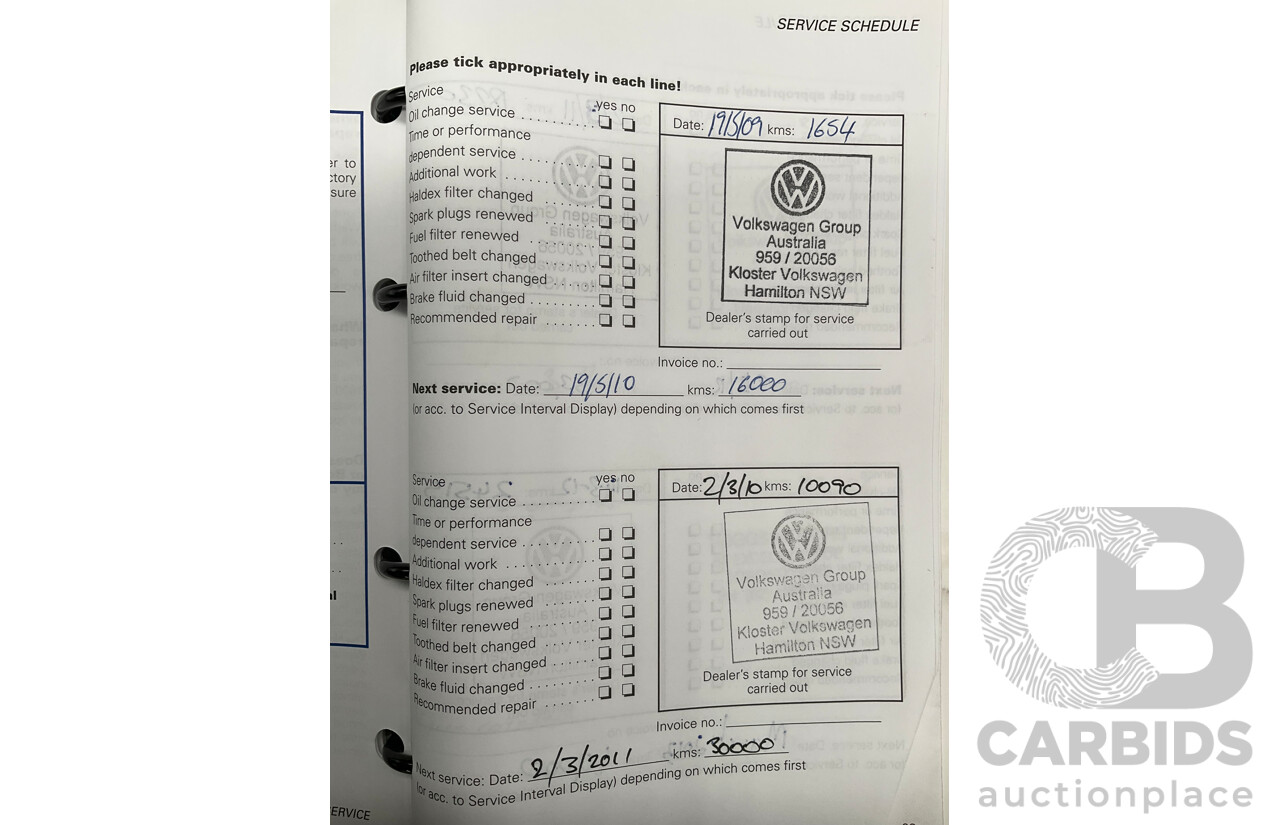 SERVICE SCHEDULE
Please tick appropriately in each line!
Service
yes no
Oil change service
Time or performance
dependent service
Additional work
Haldex filter changed
Spark plugs renewed
Fuel filter renewed
Toothed belt changed
Air filter insert changed
Brake fluid changed
Recommended repair
Date: 19/5/09 kms: 1654
Volkswagen Group
Australia
959 / 20056
Kloster Volkswagen
Hamilton NSW
Dealer's stamp for service
carried out
Invoice no.:
Next service: Date: 19/5/10 kms: 16000
(or acc. to Service Interval Display) depending on which comes first
Service
yes no
Oil change service
Time or performance
dependent service
Additional work
Haldex filter changed
Spark plugs renewed
Fuel filter renewed
Toothed belt changed
Air filter insert changed
Brake fluid changed
Recommended repair
Date: 2/3/10 kms: 10090
Volkswagen Group
Australia
959 / 20056
Kloster Volkswagen
Hamilton NSW
Dealer's stamp for service
carried out
Invoice no.:
Next service: Date: 2/3/2011 kms: 30000
(or acc. to Service Interval Display) depending on which comes first
er to
ctory
sure
ERVICE
CB
CARBIDS
auctionplace